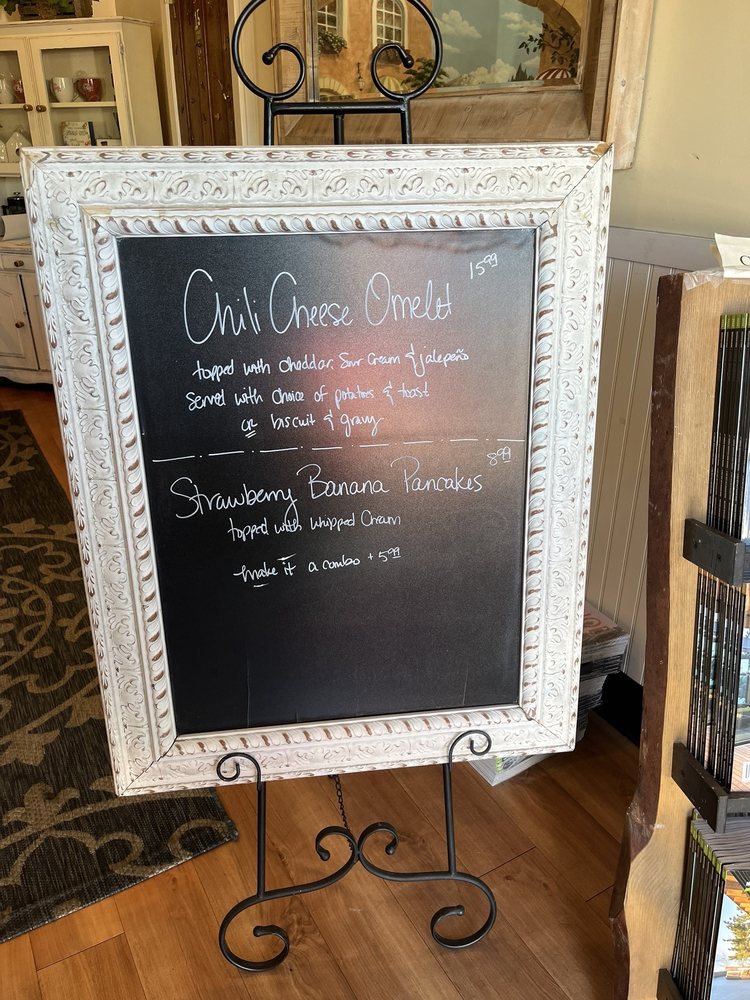 Chili Cheese Omelet 15.99
topped with cheddar, sour cream & jalepeño
served with choice of potatoes & toast
or biscuit & gravy
Strawberry Banana Pancakes 8.99
topped with whipped cream
make it a combo + 5.99